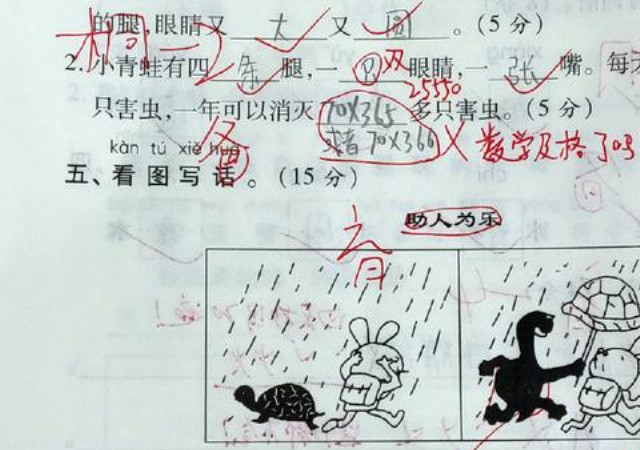 的腿,眼睛又 大 又 圆 。(5 分)
2. 小青蛙有四 条 腿,一 双 眼睛,一 张 嘴。每天
25550
只害虫,一年可以消灭 70×365 多只害虫。(5 分)
或者 70×366 × 数学及格了吗
kàn tú xiě huà
五、看 图 写 话 。(15 分)
助人为乐